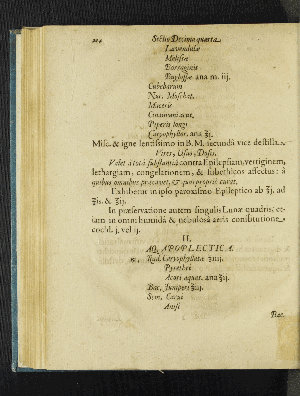 224 Sectio Decima quarta
Lavendulæ
Melissæ
Borraginis
Buglossæ ana m. iij.
Cubebarum
Nuc. Moschat.
Maceris
Cinamomi acut.
Piperis longi
Caryophyllor. ana ʒj.
Misc. & igne lentissimo in B. M. secundâ vice destilla.
Vires, Usus, Dosis.
Valet à totâ substantiâ contra Epilepsiam, vertiginem,
lethargiam, congelationem, & subethicos affectus: à
quibus omnibus præcavet, & quos proprié curat.
Exhibetur in ipso paroxismo Epileptico ab ʒj. ad
ʒiß. & ʒij.
In præservatione autem singulis Lunæ quadris, et-
iam in omni humidâ & nebulosâ aeris constitutione
cochl. j. vel ij.
II.
AQ. APOPLECTICA.
℞. Rad. Caryophyllatæ ʒiij.
Pyrethri
Acori aquat. ana ʒij.
Bac. Juniperi ʒiij.
Sem. Carui
Anisi